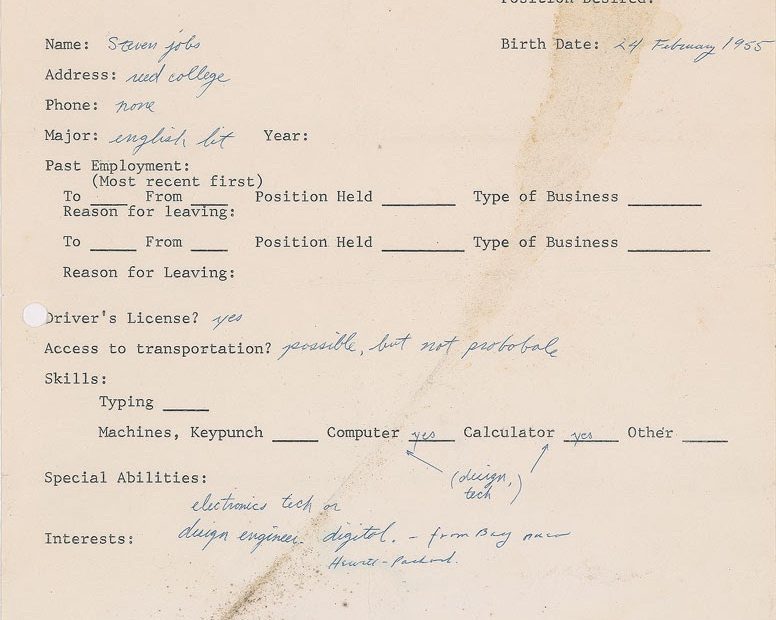 Position Desired:
Name: Steven jobs Birth Date: 24 February 1955
Address: reed college
Phone: none
Major: english lit Year:
Past Employment:
(Most recent first)
To ____ From ____ Position Held ________ Type of Business ________
Reason for leaving:
To _____ From ____ Position Held _________ Type of Business _________
Reason for Leaving:
Driver's License? yes
Access to transportation? possible, but not probobale
Skills:
Typing _____
Machines, Keypunch _____ Computer yes Calculator yes Other _____
(design,
tech)
Special Abilities:
electronics tech or
Interests: design engineer. digital. - from Bay
Hewitt-Packard.